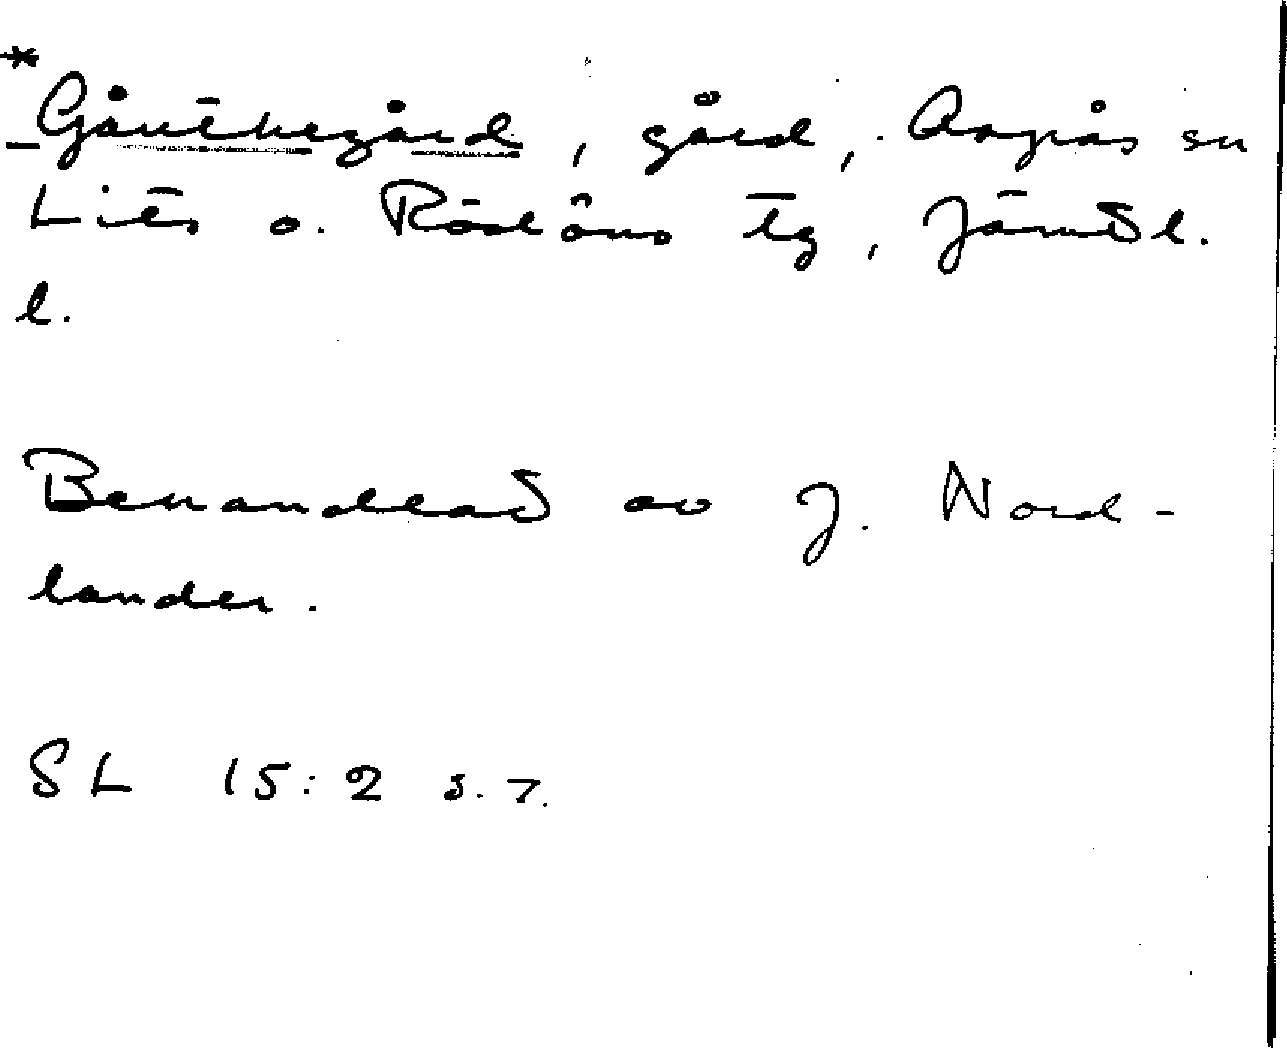 *
Gåutkegård, gård, Aspås sn
Lits o. Rödöns tg, Jämtl.
l.
Behandlad av J. Nord-
lander.
SL 15:2 s. 7.